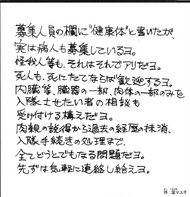 募集人員の欄に“健康体”と書いたが、
実は病人も募集しているヨ。
怪我人等も、それはそれでアリだヨ。
死人も、死にたてならば歓迎するヨ。
内臓等、臓器の一部、肉体の一部のみを
入隊させたい者の相談も
受け付ける構えだヨ。
肉親の説得から過去の経歴の抹消、
入隊手続きの処理まで、
全てどうとでもなる問題だヨ。
先ずは気軽に連絡し給えヨ。